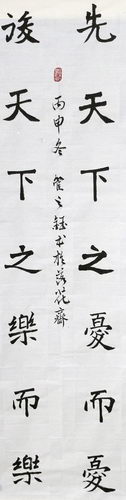 先天下之憂而憂
後天下之樂而樂
丙申冬管之鈺书於落花齋